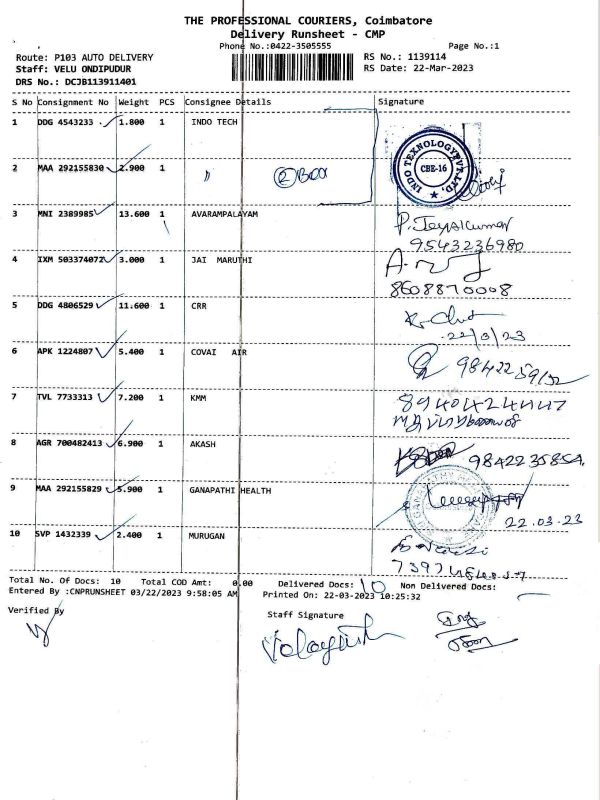 THE PROFESSIONAL COURIERS, Coimbatore
Delivery Runsheet - CMP
Phone No.:0422-3505555 Page No.:1
Route: P103 AUTO DELIVERY RS No.: 1139114
Staff: VELU ONDIPUDUR RS Date: 22-Mar-2023
DRS No.: DCJB113911401
S No Consignment No Weight PCS Consignee Details Signature
1 DDG 4543233 1.800 1 INDO TECH
INDO TEXNOLOGY PVT.LTD. CBE-16
2 MAA 292155830 2.900 1 " 2 Box
3 MNI 2389985 13.600 1 AVARAMPALAYAM P. Jeyalkumar
9543236980
4 IXM 503374072 3.000 1 JAI MARUTHI
8608870008
5 DDG 4806529 11.600 1 CRR
22/3/23
6 APK 1224807 5.400 1 COVAI AIR
7 TVL 7733313 7.200 1 KMM
8 AGR 700482413 6.900 1 AKASH
9 MAA 292155829 5.900 1 GANAPATHI HEALTH
22.03.23
10 SVP 1432339 2.400 1 MURUGAN
Total No. Of Docs: 10 Total COD Amt: 0.00 Delivered Docs: 10 Non Delivered Docs:
Entered By :CNPRUNSHEET 03/22/2023 9:58:05 AM Printed On: 22-03-2023 10:25:32
Verified By Staff Signature